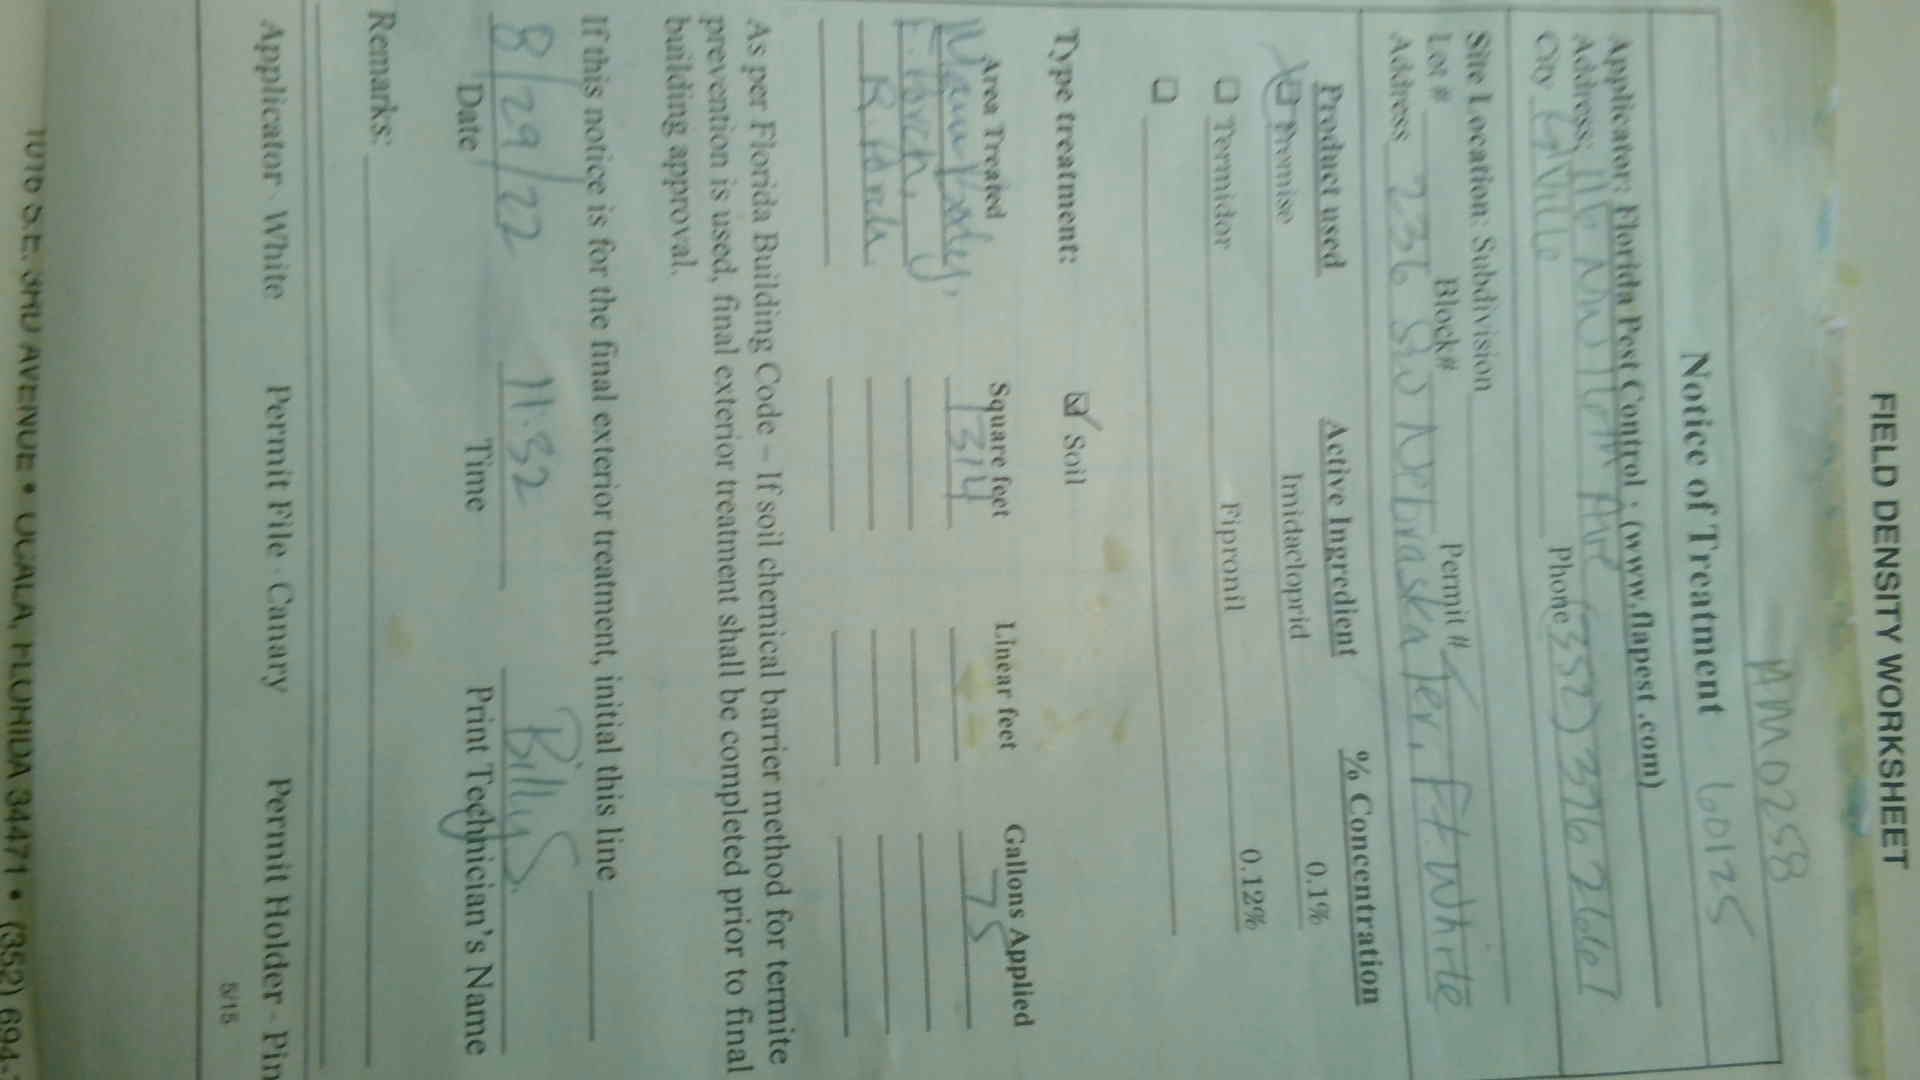 FIELD DENSITY WORKSHEET
AM0258
Notice of Treatment 60125
Applicator: Florida Pest Control · (www.flapest.com)
Address: 116 NW 16th Ave
City G'Ville Phone (352) 376 2661
Site Location: Subdivision
Lot # Block# Permit #
Address 236 SW Nebraska Ter, Ft. White
Product used Active Ingredient % Concentration
Premise Imidacloprid 0.1%
Termidor Fipronil 0.12%
Type treatment: Soil
Area Treated Square feet Linear feet Gallons Applied
Main Body, 1314 75
F. Porch,
R.
As per Florida Building Code – If soil chemical barrier method for termite
prevention is used, final exterior treatment shall be completed prior to final
building approval.
If this notice is for the final exterior treatment, initial this line
8/29/22 11:32 Billy S.
Date Time Print Technician's Name
Remarks:
Applicator - White Permit File - Canary Permit Holder - Pin
5/15
S.E. 3RD AVENUE • OCALA, FLORIDA 34471 • (352) 694-